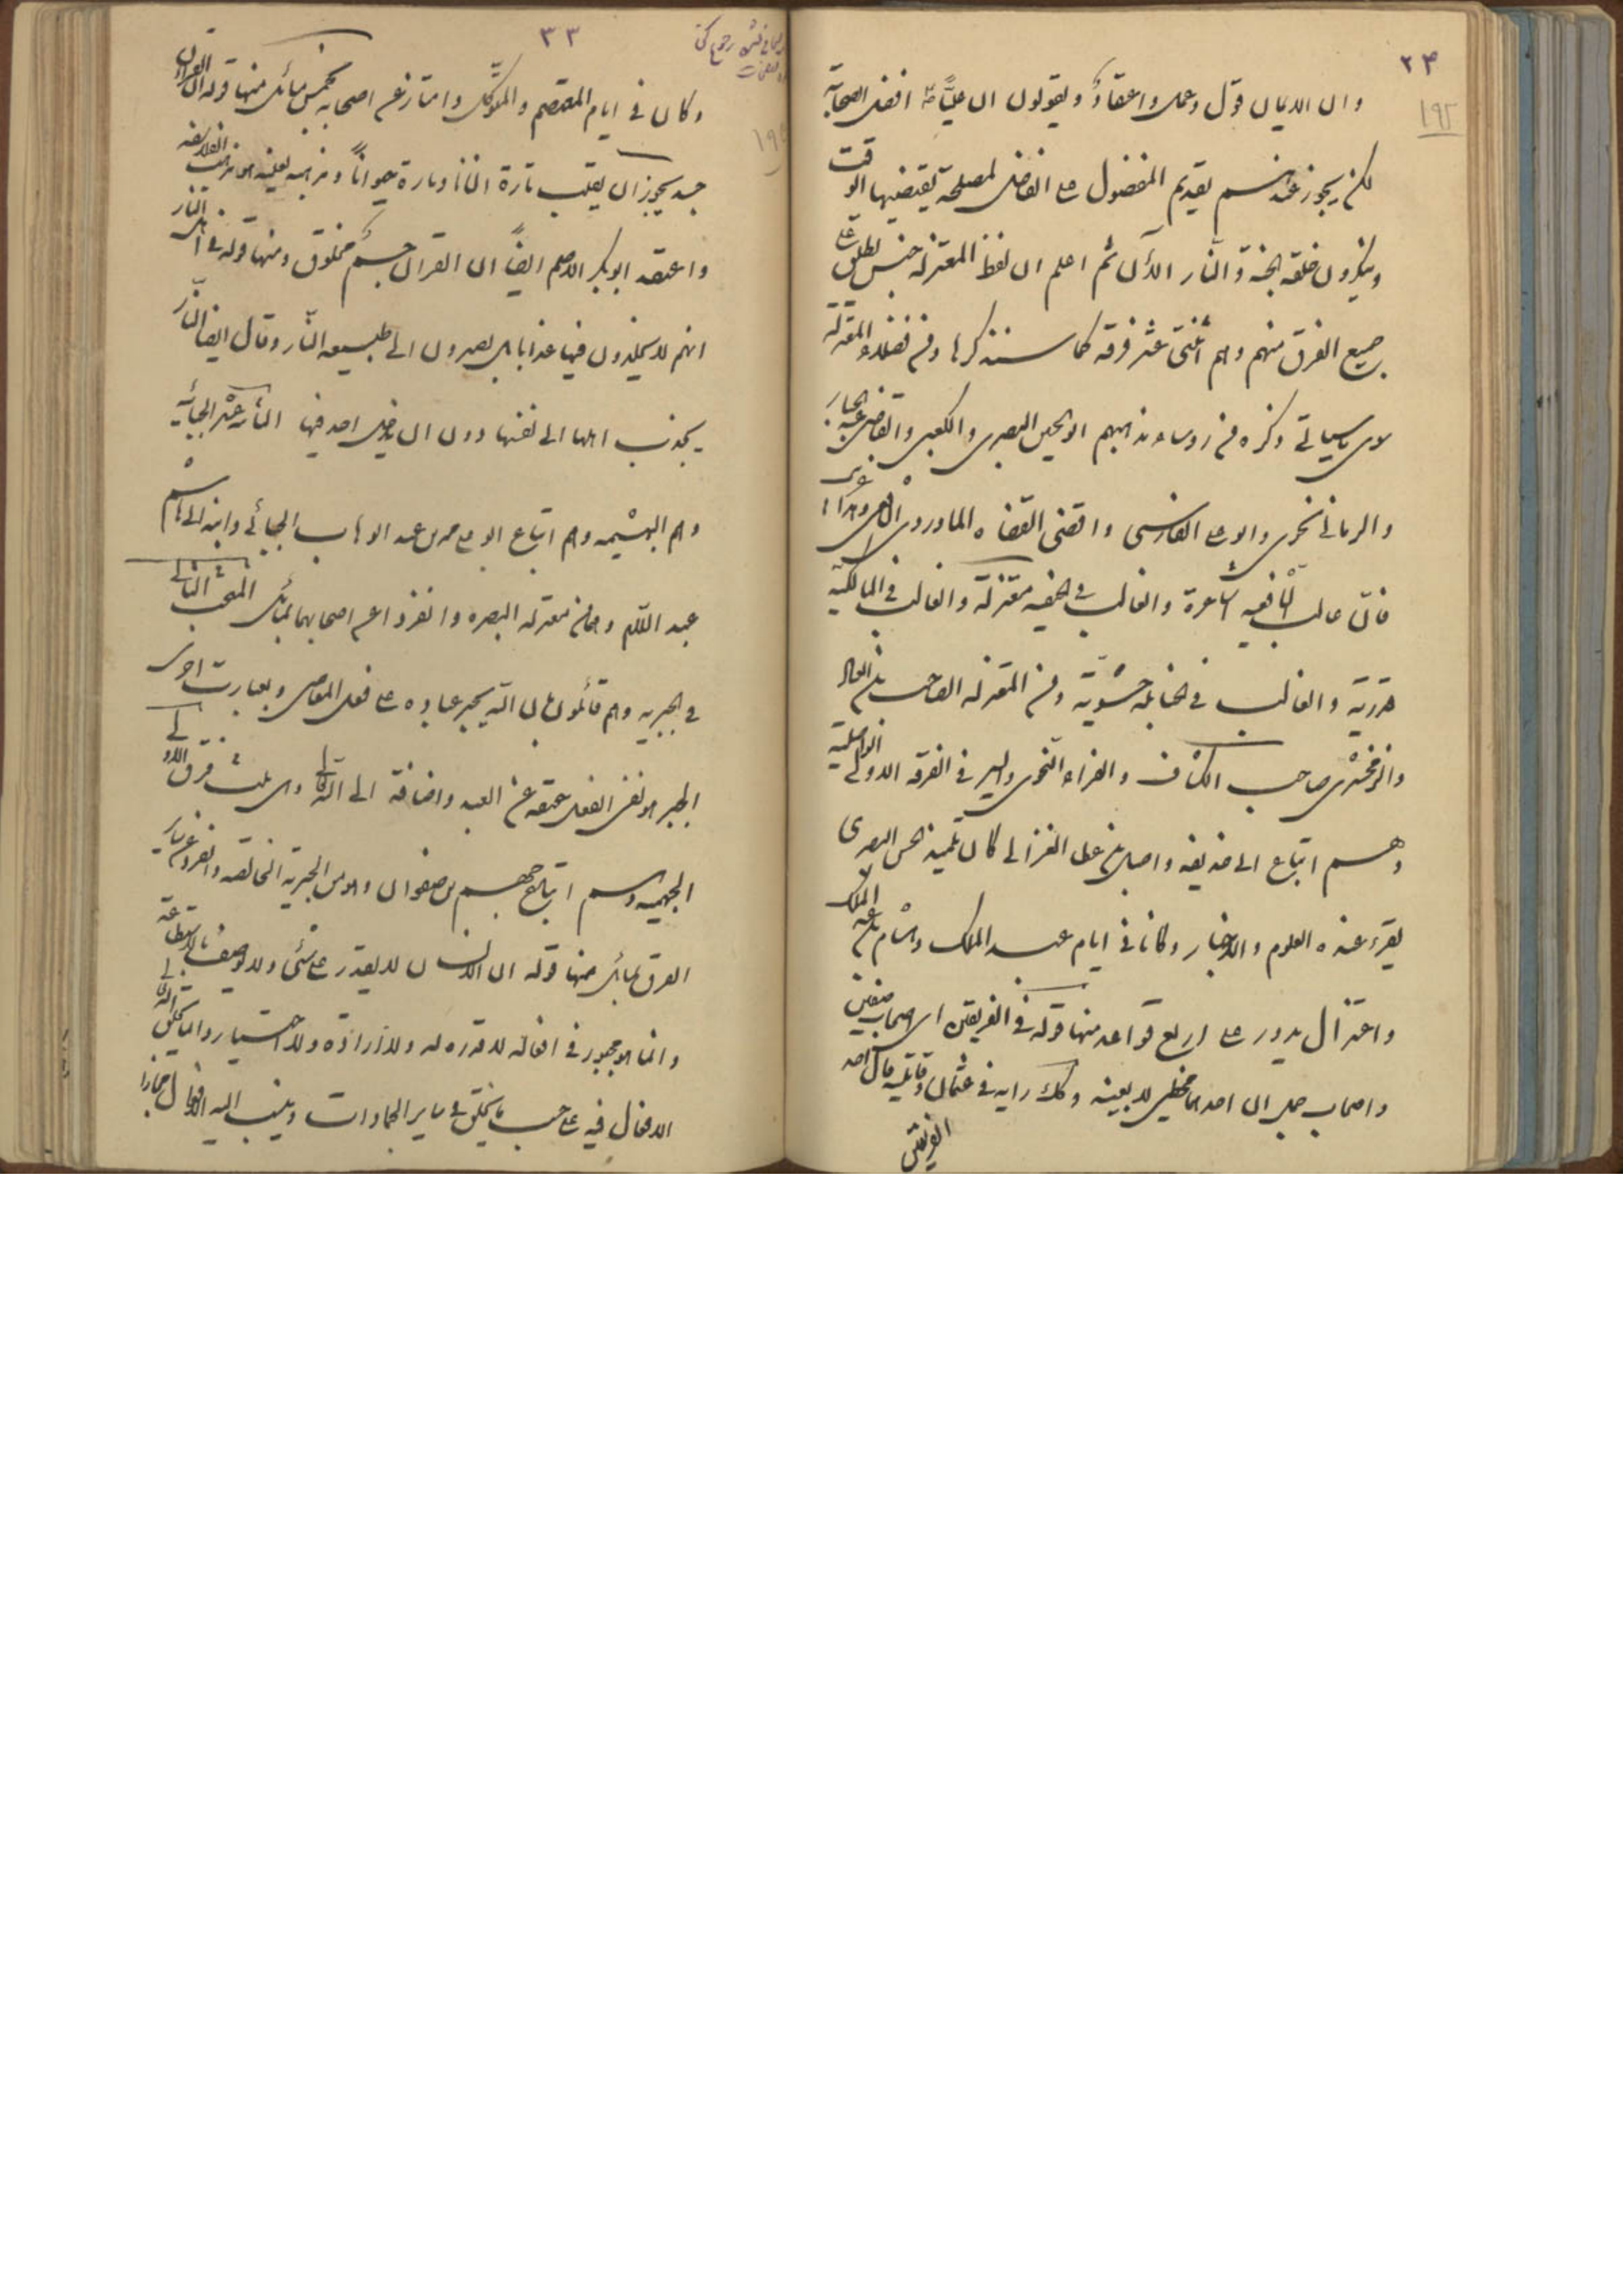 ٢٤
١٩٢
وان الايمان قول وعمل واعتقاد ويقولون ان عليًّا افضل الصحابة
لكن يجوز عندهم تقديم المفضول على الفاضل لمصلحة يقتضيها الوقت
وينكرون خلقة الجنة والنار الآن ثم اعلم ان لفظ المعتزلة جنس يطلق على
جميع الفرق منهم وهم اثنتى عشر فرقه كما سنذكرها ومن فضلاء المعتزلة
سوى ما سياتى ذكره من روساء مذاهبهم ابو الحسين البصرى والكعبى والقاضى عبد الجبار
والرمانى النحوى وابو على الفارسى واقضى القضاه الماوردى الشافعى وهذا
فان غالب الشافعيه اشاعرة والغالب فى الحنفيه معتزلة والغالب فى المالكية
قدرية والغالب فى الحنابلة حشوية ومن المعتزله الصاحب بن العباد
والزمخشرى صاحب الكشاف والفراء النحوى والسير فى الفرقه الاولى الواصلية
وهم اتباع ابى حذيفه واصل بن عطا الغزالى كان تلميذ الحسن البصرى
يقرء عنده العلوم والاخبار وكانا فى ايام عبد الملك وهشام بن عبد الملك
واعتزال يدور على اربع قواعد منها قوله فى الفريقين اى اصحاب صفين
واصحاب جمل ان احدهما مخطى لا بعينه وكك رايه فى عثمان وقاتليه قال احد
الفريقين
٣٣
وكان فى ايام المعتصم والمتوكل وامتاز عن اصحابه بخمس مسائل منها قوله ان القران
جسد يجوز ان يقلب تارة انسانا وتارة حيواناً ومذهبه بعينه هو مذهب الفلاسفه
واعتقد ابو بكر الاصم ايضاً ان القران جسم مخلوق ومنها قوله فى اهل النار
انهم لا يخلدون فيها عذابا بل يصيرون الى طبيعه النار وقال ايضا النار
يجذب اهلها الى نفسها دون ان يدخل احد فيها الثانية عشر الجبائية
وهم البهشميه وهم اتباع ابو على محمد بن عبد الوهاب الجبائى وابنه ابى هاشم
عبد السلام وهما من معتزله البصره وانفردا عن اصحابهما بمسائل المبحث الثانى
فى الجبريه وهم قائلون بان الله يجبر عباده على فعل المعاصى وبعبارت اخرى
الجبر هو نفى الفعل حقيقه عن العبد واضافة الى الله تعالى وهى ثلث فرق الاولى
الجهميه وهم اتباع جهم بن صفوان وهو من الجبريه الخالصه وانفرد عن ساير
الفرق بمسائل منها قوله ان الانسان لا يقدر على شئ ولا يوصف بالاستطاعة
وانما هو مجبور فى افعاله لا قدره له ولا ارادة ولا اختيار وانما يخلق الله تعالى
الافعال فيه على حسب ما يخلق فى ساير الجمادات وينسب اليه الافعال مجازا